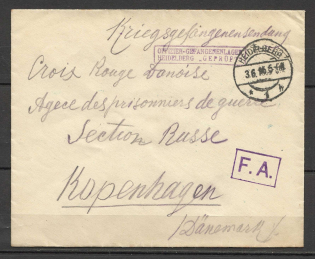 Kriegsgefangenensendung
OFFIZIER-GEFANGENENLAGER
HEIDELBERG "GEPRÜFT"
HEIDELBERG
3.6.16.5-6N
Croix Rouge Danoise
Agece des prisonniers de guerre
Section Russe
F.A.
Kopenhagen
/Dänemark/.